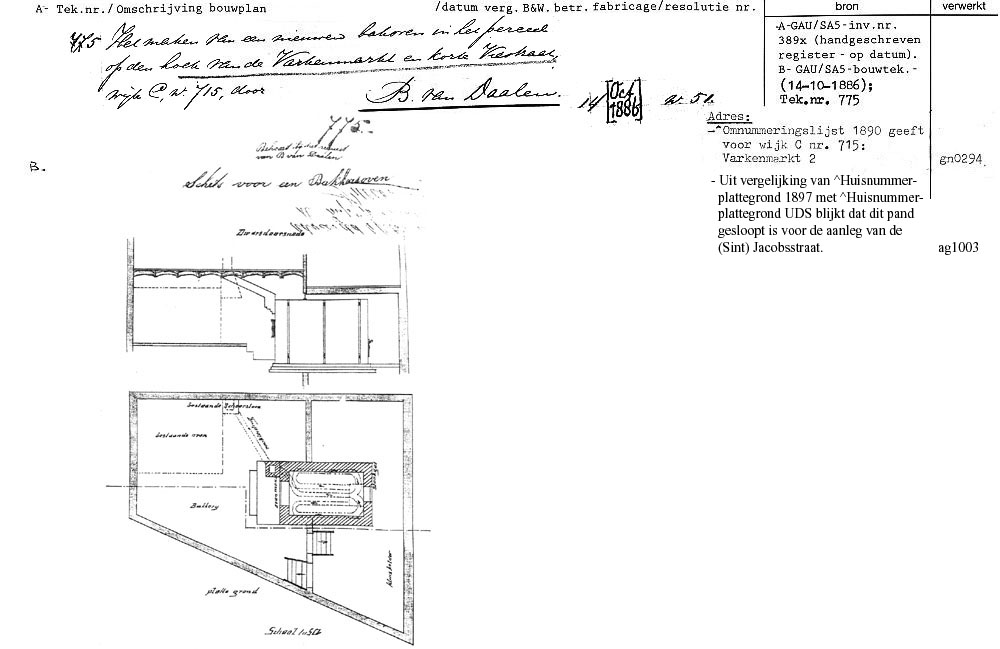 A- Tek.nr./Omschrijving bouwplan /datum verg. B&W. betr. fabricage/resolutie nr. bron verwerkt
775 Het maken van een nieuwen bakoven in het perceel
op den hoek van de Varkenmarkt en korte Viestraat,
wijk C, nr. 715, door B. van Daalen. 14 [Oct. 1886] nr. 51
A-GAU/SA5-inv.nr.
389x (handgeschreven
register - op datum).
B- GAU/SA5-bouwtek.-
(14-10-1886);
Tek.nr. 775
Adres:
-^Omnummeringslijst 1890 geeft
voor wijk C nr. 715:
Varkenmarkt 2 gn0294
- Uit vergelijking van ^Huisnummer-
plattegrond 1897 met ^Huisnummer-
plattegrond UDS blijkt dat dit pand
gesloopt is voor de aanleg van de
(Sint) Jacobsstraat. ag1003
B.
775.
van B van Daalen
Schets voor een Bakkersoven
Dwarsdoorsnede
bestaande Schoorsteen
bestaande oven
Bakkery
platte grond
Schaal